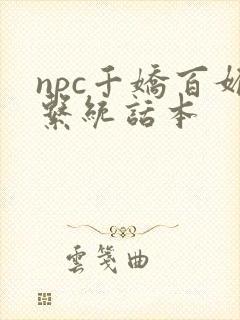 npc千嬌百媚
繫統話本
雲箋曲